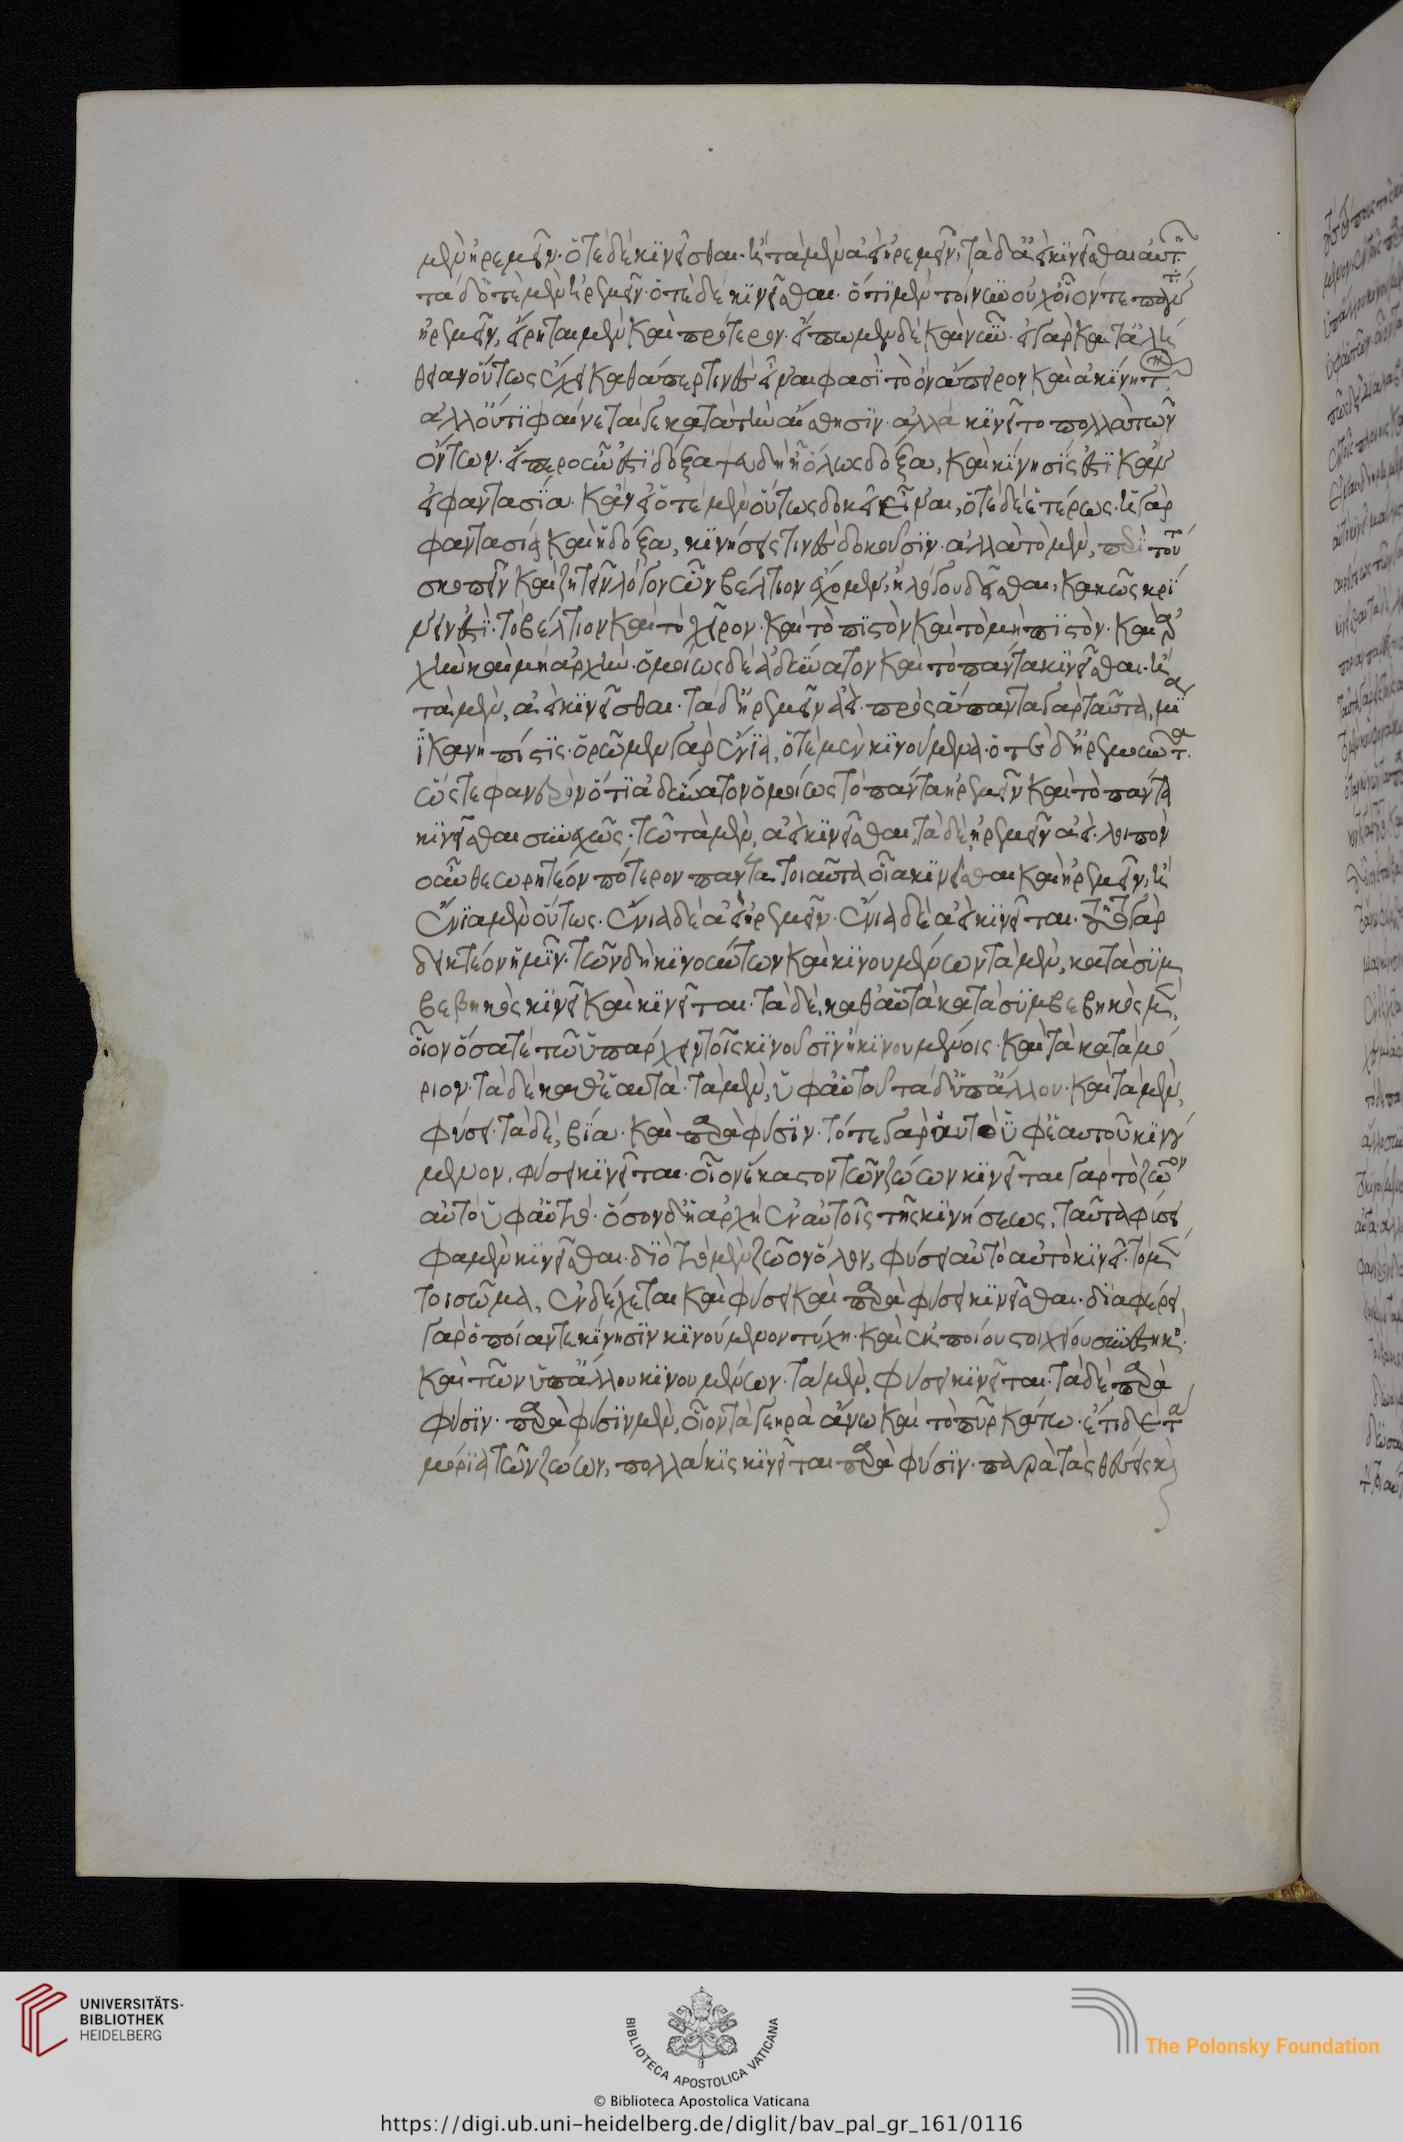 μὲν ἠρεμεῖν· ὁτὲ δὲ κινεῖσθαι· ἢ τὰ μὲν ἀεὶ ἠρεμεῖν, τὰ δ' ἀεὶ κινεῖσθαι αὐτῶν
τὰ δ' ὁτὲ μὲν ἠρεμεῖν· ὁτὲ δὲ κινεῖσθαι· ὅτι μὲν τοίνυν οὐχ οἷόν τε πάντ'
ἠρεμεῖν, εἴρηται μὲν καὶ πρότερον· εἴπωμεν δὲ καὶ νῦν· εἰ γὰρ κατ' ἀλή
θειαν οὕτως ἔχει καθάπερ τινὲς εἶναι φασὶ τὸ ὂν ἄπειρον καὶ ἀκίνητ
ἀλλ' οὔτι φαίνεταί γε κατὰ τὴν αἴσθησιν· ἀλλὰ κινεῖτο πολλὰ τῶν
ὄντων· εἴπερ οὖν ἐστὶ δόξα ψευδὴ ἢ ὅλως δόξα, καὶ κίνησίς ἐστι κἂν
εἰ φαντασία· κἂν εἰ ὁτὲ μὲν οὕτως δοκεῖ εἶναι, ὁτὲ δὲ ἑτέρως· ἡ γὰρ
φαντασία καὶ ἡ δόξα, κινήσεις τινὲς δοκοῦσιν· ἀλλὰ τὸ μὲν, περὶ τού
σκοπεῖν καὶ ζητεῖν λόγον ὧν βέλτιον ἔχομεν, ἢ λόγου δεῖσθαι, κακῶς κρί
νειν ἐστὶ· τὸ βέλτιον καὶ τὸ χεῖρον· καὶ τὸ πιστὸν καὶ τὸ μὴ πιστὸν· καὶ ἀρ
χὴν καὶ μὴ ἀρχὴν· ὁμοίως δὲ ἀδύνατον καὶ τὸ πάντα κινεῖσθαι· ἢ
τὰ μὲν, ἀεὶ κινεῖσθαι· τὰ δ' ἠρεμεῖν ἀεὶ· πρὸς ἅπαντα γὰρ ταῦτα, μία
ἱκανὴ πίστις· ὁρῶμεν γὰρ ἔνια, ὁτὲ μὲν κινούμενα· ὁτὲ δ' ἠρεμοῦντα.
ὥστε φανερὸν ὅτι ἀδύνατον ὁμοίως τὸ πάντα ἠρεμεῖν καὶ τὸ πάντα
κινεῖσθαι συνεχῶς· τῶ τὰ μὲν, ἀεὶ κινεῖσθαι, τὰ δὲ ἠρεμεῖν ἀεὶ· λοιπὸν
οὖν θεωρητέον πότερον πάντα τοιαῦτα οἷα κινεῖσθαι καὶ ἠρεμεῖν, ἢ
ἔνια μὲν οὕτως· ἔνια δὲ ἀεὶ ἠρεμεῖν· ἔνια δὲ ἀεὶ κινεῖται· τοῦτο γὰρ
δεικτέον ἡμῖν· τῶν δὴ κινούντων καὶ κινουμένων τὰ μὲν, κατὰ συμ
βεβηκὸς κινεῖ καὶ κινεῖται· τὰ δὲ, καθ' αὑτὰ· κατὰ συμβεβηκὸς μὲν,
οἷον ὅσα τε τῶ ὑπάρχειν τοῖς κινοῦσιν ἢ κινουμένοις· καὶ τὰ κατὰ μό
ριον· τὰ δὲ καθ' ἑαυτὰ· τὰ μὲν, ὑφ' αὑτοῦ τὰ δ' ὑπ' ἄλλου· καὶ τὰ μὲν,
φύσει· τὰ δὲ, βία· καὶ παρὰ φύσιν· τό τε γὰρ αὐτὸ ὑφ' ἑαυτοῦ κινού
μενον, φύσει κινεῖται· οἷον ἕκαστον τῶν ζώων κινεῖται γὰρ τὸ ζῶον
αὐτὸ ὑφ' αὑτοῦ· ὅσον δ' ἡ ἀρχὴ ἐν αὐτοῖς τῆς κινήσεως, ταῦτα φύσει
φαμὲν κινεῖσθαι· διὸ τὸ μὲν ζῶον ὅλον, φύσει αὐτὸ αὑτὸ κινεῖ· τὸ μέν
τοι σῶμα, ἐνδέχεται καὶ φύσει καὶ παρὰ φύσει κινεῖσθαι· διαφέρει
γὰρ ὁποίαν τε κίνησιν κινούμενον τύχη· καὶ ἐκ ποίου στοιχείου συνέστηκε·
καὶ τῶν ὑπ' ἄλλου κινουμένων· τὰ μὲν, φύσει κινεῖται· τὰ δὲ, παρὰ
φύσιν· παρὰ φύσιν μὲν, οἷον τὰ γεηρὰ ἄνω καὶ τὸ πῦρ κάτω· ἔτι δὲ τὰ
μόρια τῶν ζώων, πολλάκις κινεῖται παρὰ φύσιν· παρὰ τὰς θέσεις κ
UNIVERSITÄTS-
BIBLIOTHEK
HEIDELBERG
BIBLIOTECA APOSTOLICA VATICANA
The Polonsky Foundation
© Biblioteca Apostolica Vaticana
https://digi.ub.uni-heidelberg.de/diglit/bav_pal_gr_161/0116